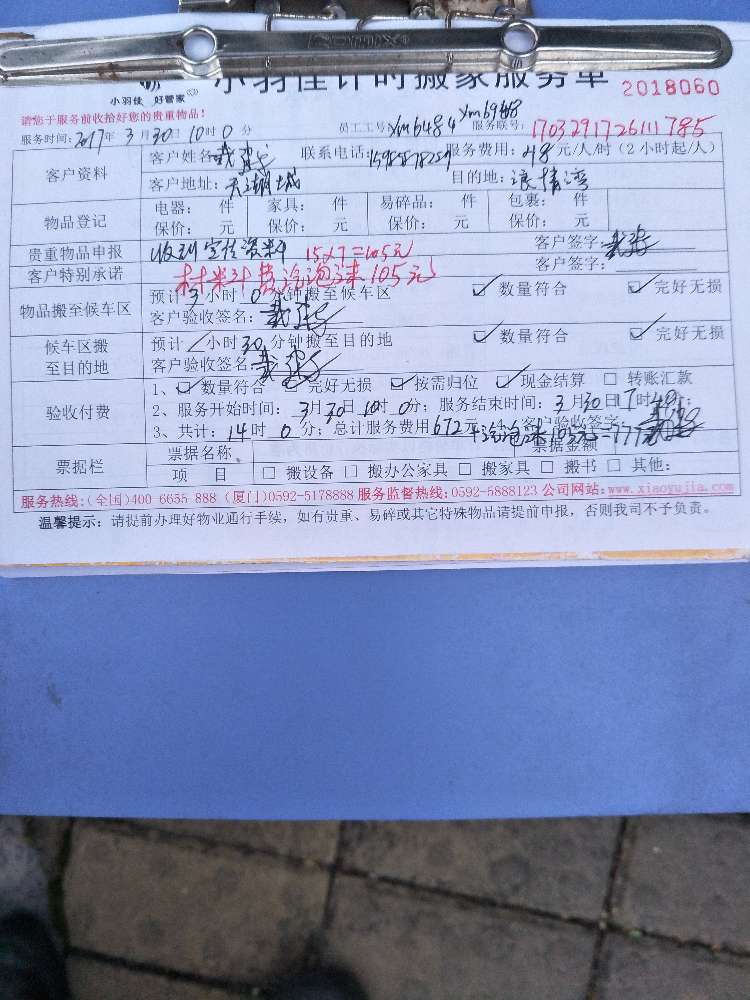 小羽佳计时搬家服务单 2018060
小羽佳 好管家
请您于服务前收拾好您的贵重物品!
服务时间:2017年3月30日10时0分 员工工号:xm6484 服务联号:1703291726111785
客户资料 客户姓名: 联系电话: 服务费用:48元/人/时(2小时起/人)
客户地址:天湖城 目的地:浪情湾
物品登记 电器: 件 家具: 件 易碎品: 件 包裹: 件
保价: 元 保价: 元 保价: 元 保价: 元
贵重物品申报 收到宣传资料 15x7=105元 客户签字:
客户特别承诺 材料费汽泡沫105元 客户签字:
物品搬至候车区 预计3小时0分钟搬至候车区 数量符合 完好无损
客户验收签名:
候车区搬至目的地 预计 小时30分钟搬至目的地 数量符合 完好无损
客户验收签名:
验收付费 1、 数量符合 完好无损 按需归位 现金结算 转账汇款
2、服务开始时间:3月30日10时0分;服务结束时间:3月30日17时48分;
3、共计:14时0分;总计服务费用672元 客户验收签字:
票据栏 票据名称 票据金额
项目 搬设备 搬办公家具 搬家具 搬书 其他:
服务热线:(全国)400 6655 888 (厦门)0592-5178888 服务监督热线:0592-5888123 公司网站:www.xiaoyujia.com
温馨提示:请提前办理好物业通行手续,如有贵重、易碎或其它特殊物品请提前申报,否则我司不予负责。